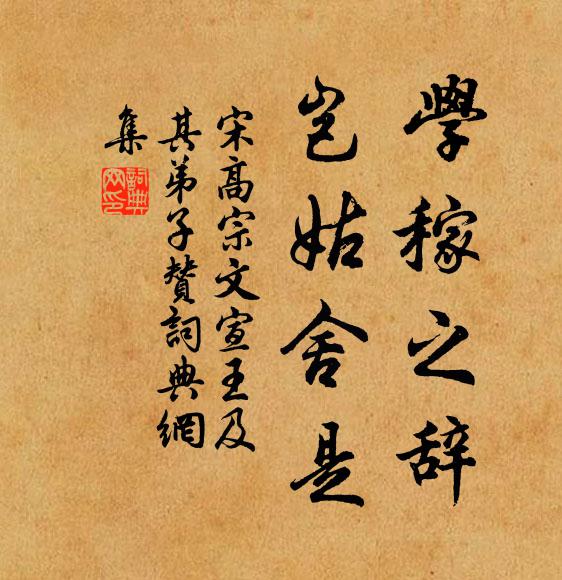 學稼之辞
岂姑舍是
宋高宗文宣王及
其弟子赞詞典網
集
詞典网印